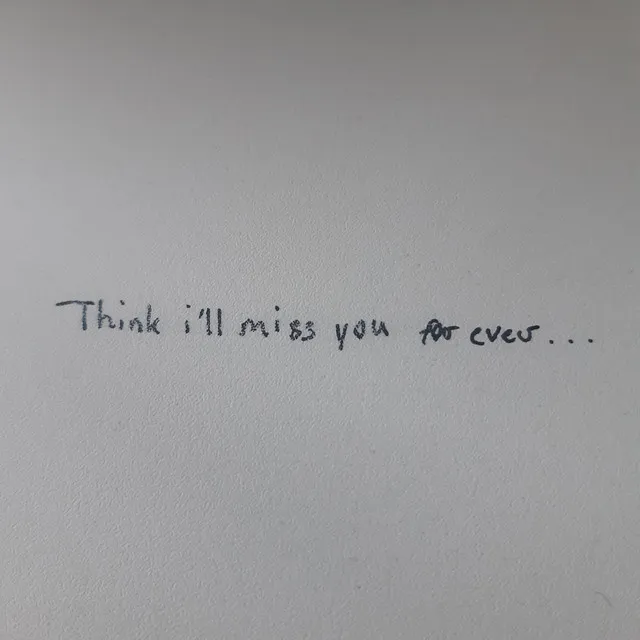 Think i'll miss you for ever...